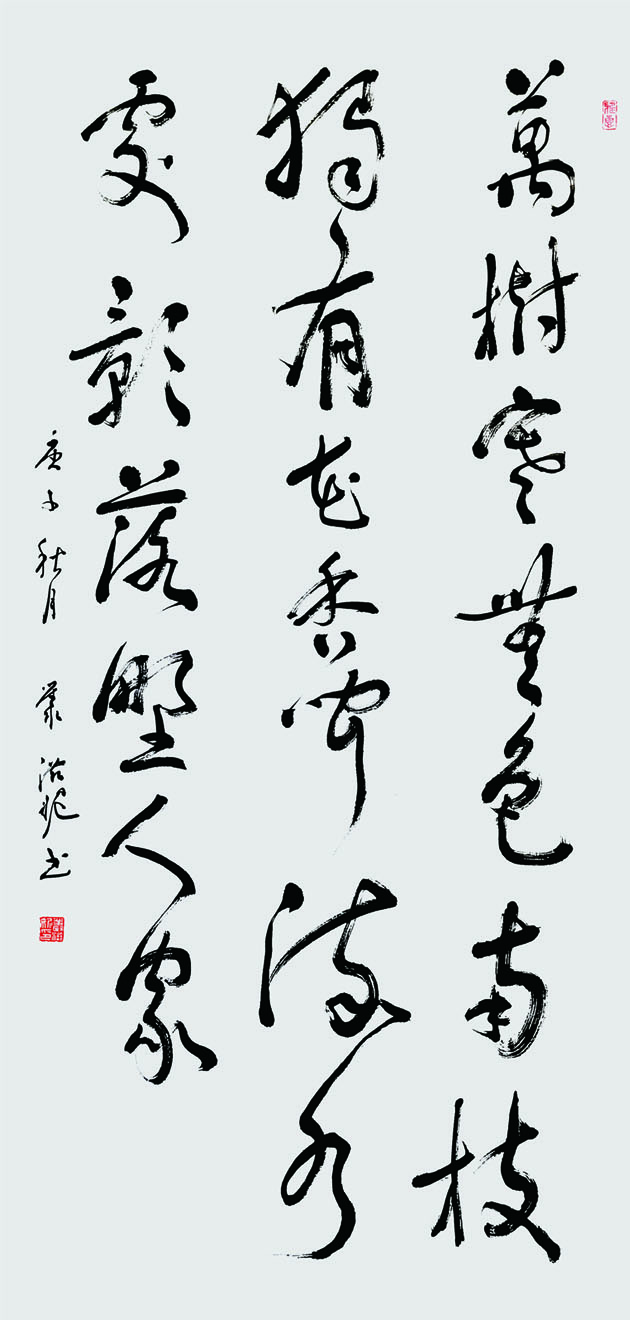 萬樹寒無色南枝
獨有花香聞流水
處影落野人家
庚子秋月 书